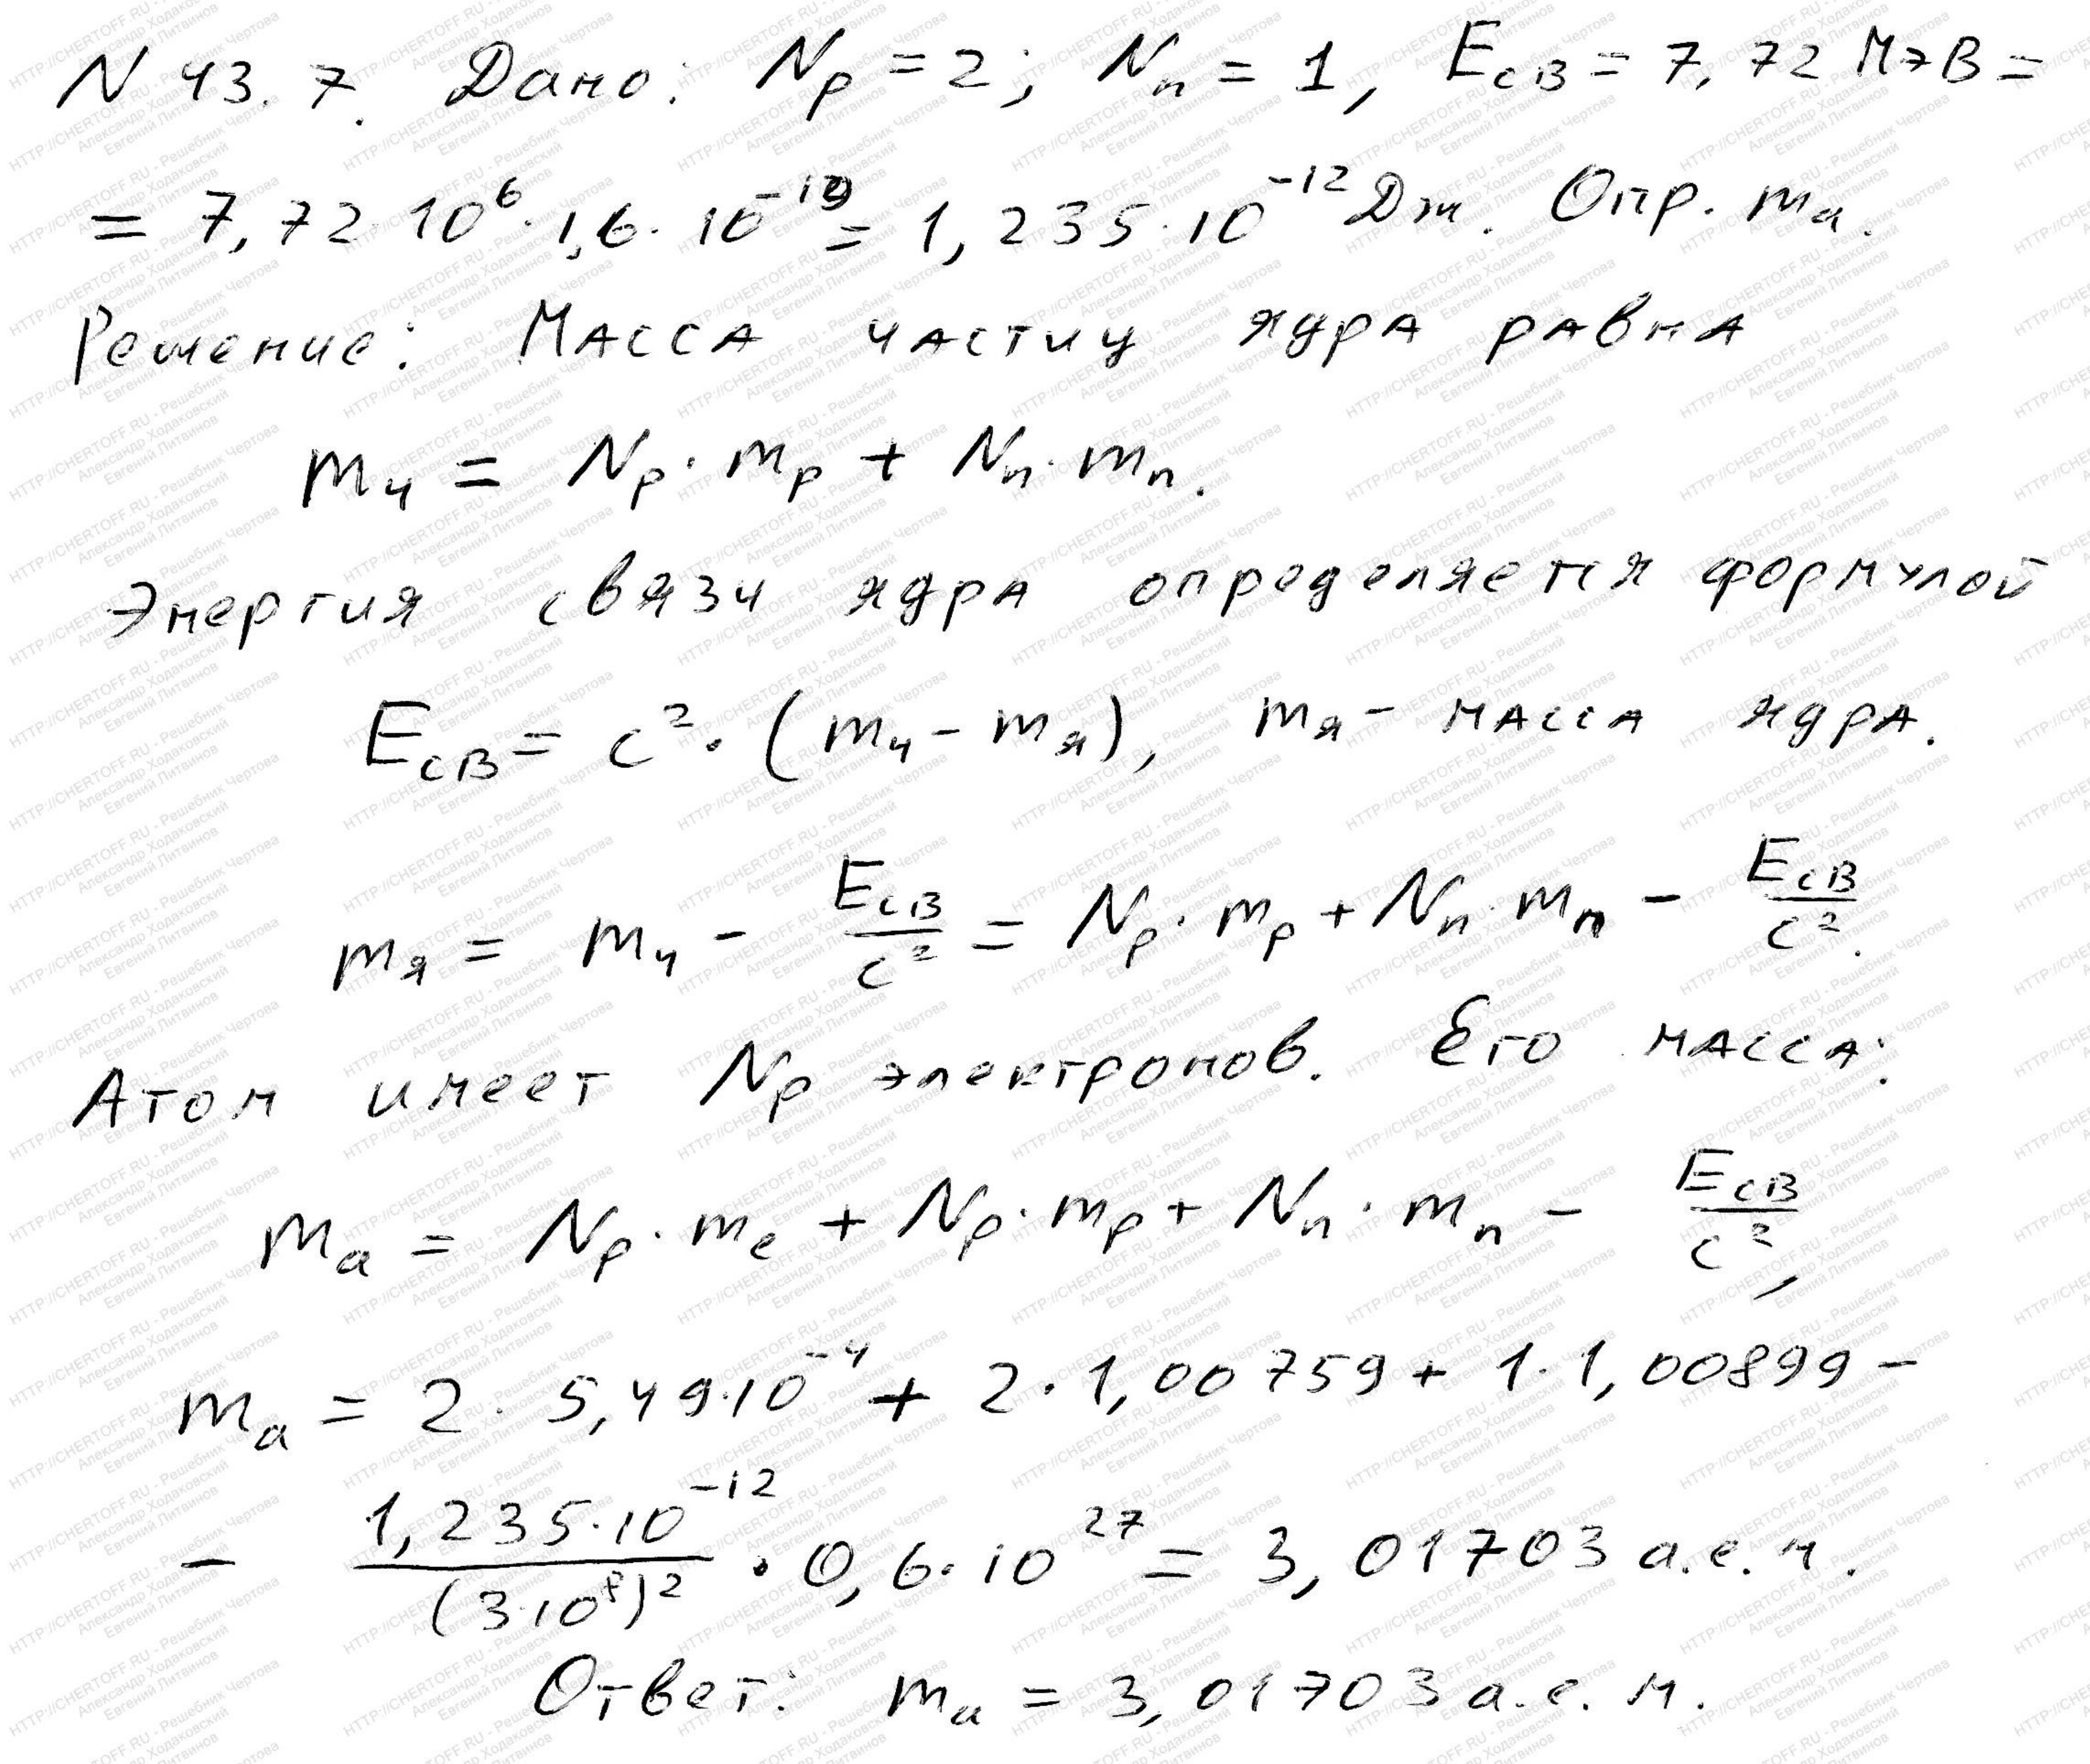 N 43.7. Дано: Np = 2; Nn = 1, Eсв = 7,72 МэВ =
= 7,72·10⁶·1,6·10⁻¹⁹ = 1,235·10⁻¹² Дж. Опр. mа.
Решение: Масса частиц ядра равна
mч = Np·mp + Nn·mn.
Энергия связи ядра определяется формулой
Eсв = c²·(mч - mя), mя - масса ядра.
mя = mч - Eсв/c² = Np·mp + Nn·mn - Eсв/c².
Атом имеет Np электронов. Его масса:
mа = Np·me + Np·mp + Nn·mn - Eсв/c²,
mа = 2·5,49·10⁻⁴ + 2·1,00759 + 1·1,00899 -
- 1,235·10⁻¹²/(3·10⁸)² · 0,6·10²⁷ = 3,01703 а.е.м.
Ответ: mа = 3,01703 а.е.м.
HTTP://CHERTOFF.RU - Решебник Чертова
Александр Ходаковский
Евгений Литвинов